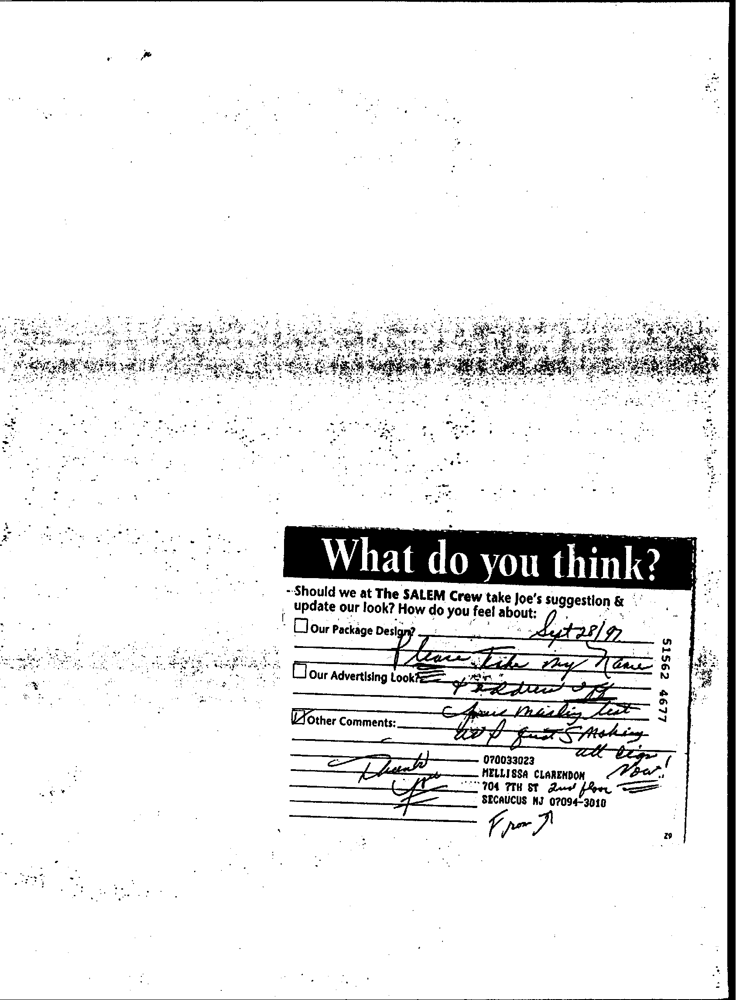 What do you think?
Should we at The SALEM Crew take Joe's suggestion &
update our look? How do you feel about:
Our Package Design?
Sept 28/97
Please Take my Name
Our Advertising Look?
& Address off
Other Comments:
mailing list
Smoking
070033023
MELLISSA CLARENDON
Now!
704 7TH ST 2nd floor
Thank
you
SECAUCUS NJ 07094-3010
From
51562 4677
29